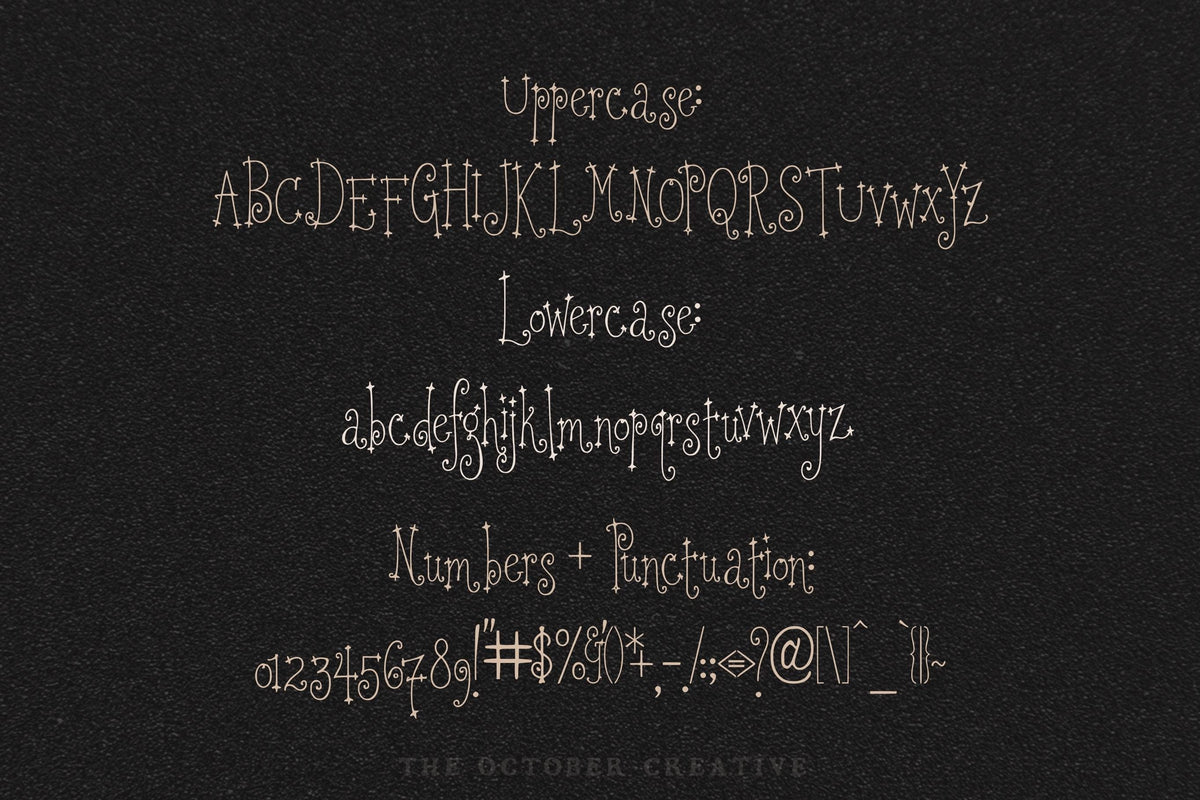 Uppercase:
ABCDEFGHIJKLMNOPQRSTUVWXYZ
Lowercase:
abcdefghijklmnopqrstuvwxyz
Numbers + Punctuation:
0123456789!"#$%&'()*+,-./:;<=>?@[\]^_`{|}~
THE OCTOBER CREATIVE